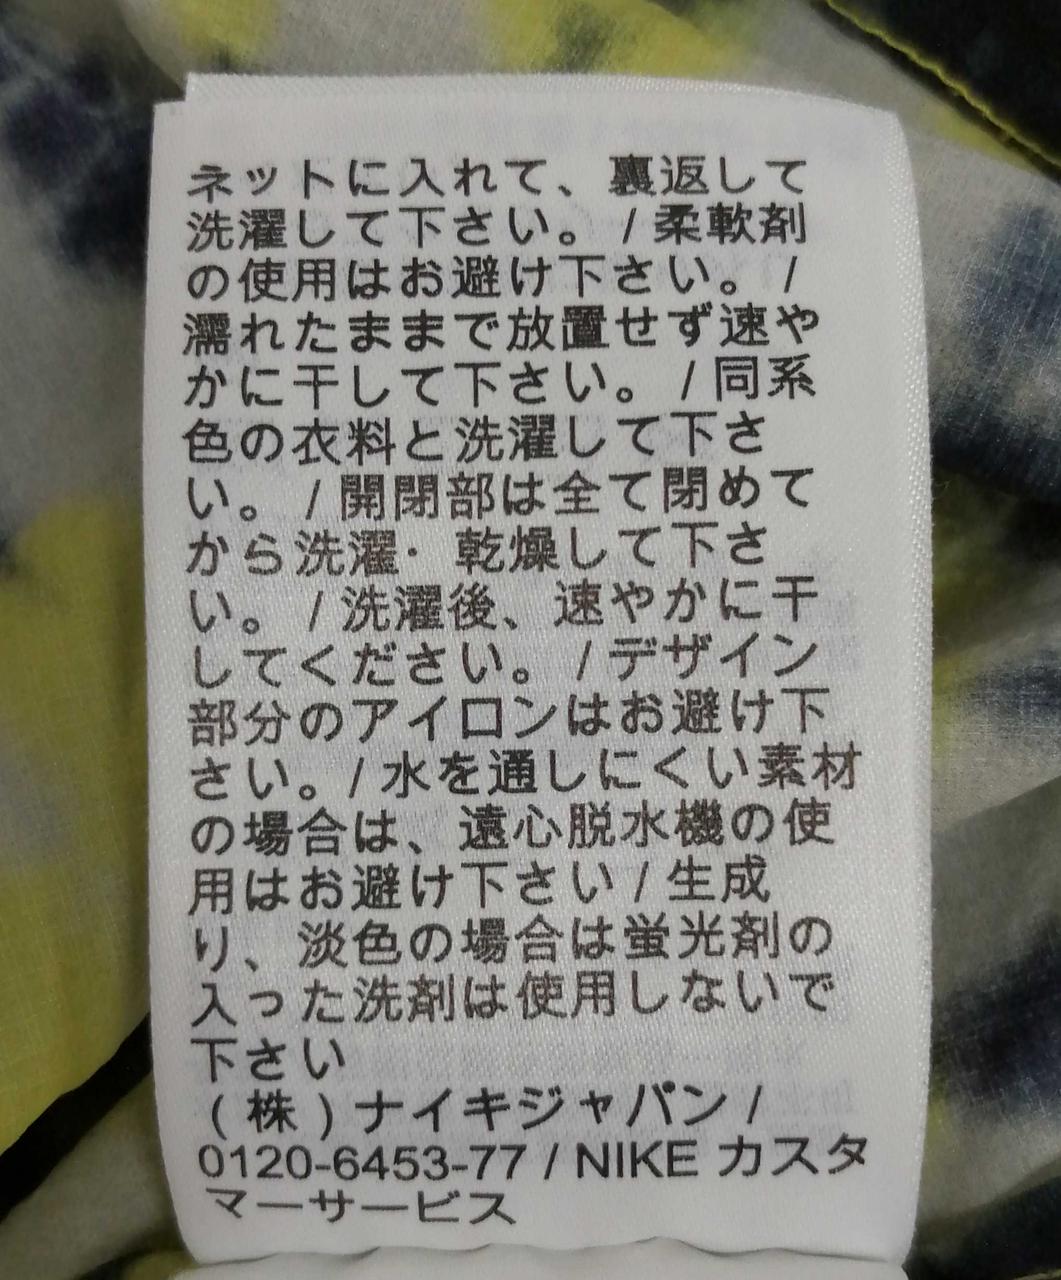 ネットに入れて、裏返して
洗濯して下さい。 / 柔軟剤
の使用はお避け下さい。 /
濡れたままで放置せず速や
かに干して下さい。 / 同系
色の衣料と洗濯して下さ
い。 / 開閉部は全て閉めて
から洗濯・乾燥して下さ
い。 / 洗濯後、速やかに干
してください。 / デザイン
部分のアイロンはお避け下
さい。 / 水を通しにくい素材
の場合は、遠心脱水機の使
用はお避け下さい / 生成
り、淡色の場合は蛍光剤の
入った洗剤は使用しないで
下さい
(株)ナイキジャパン /
0120-6453-77 / NIKE カスタ
マーサービス